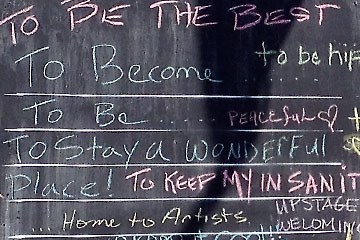 TO BE THE BEST
To Become ........ to be hip
To Be ....... PEACEFUL
To Stay a WONDERFUL
Place! TO KEEP MY INSANIT
... Home to Artists UPSTAGE
WELOMIN